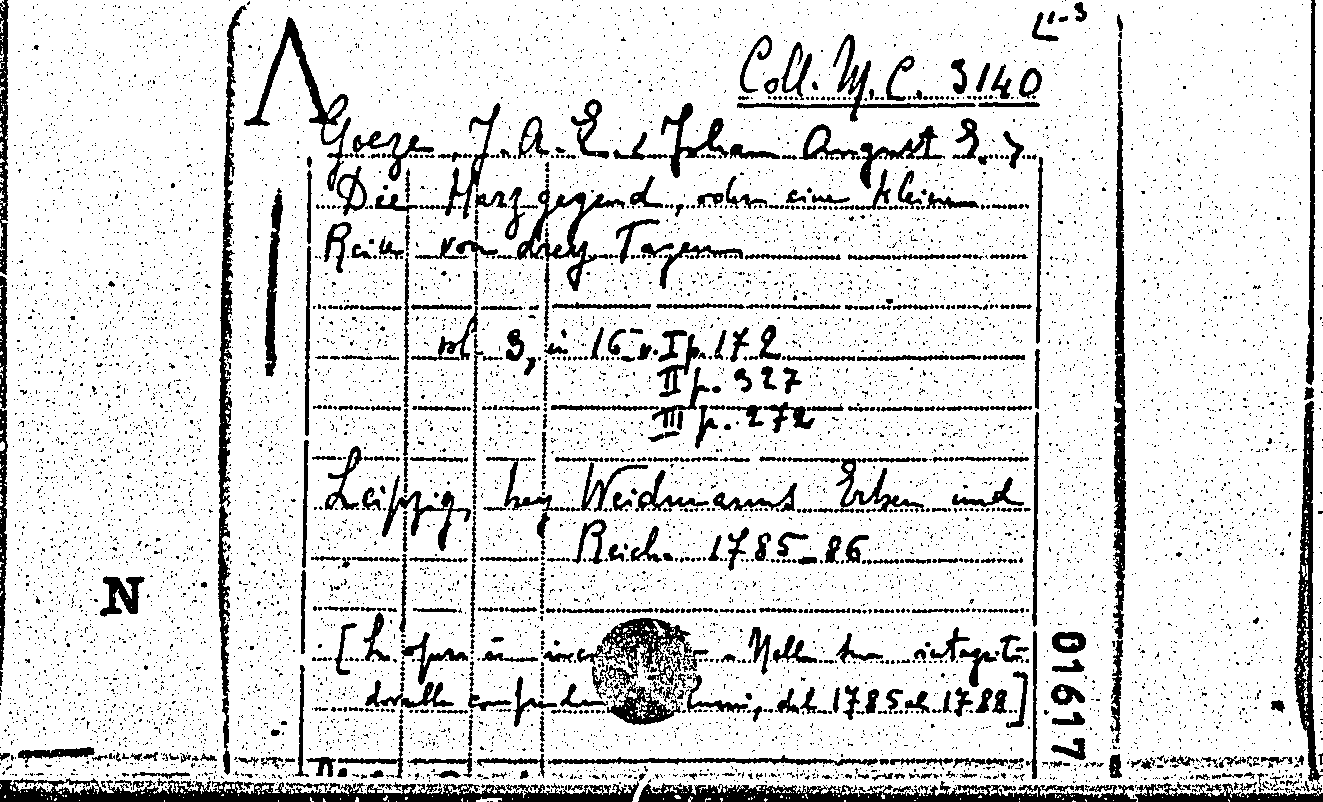 1-3
Coll. M. C. 3140
Goeze, J. A. E. < Johan August E. >
Die Harzgegend, oder eine kleine
Reise von drey Tagen
vol. 3, in 16. v. I p. 172
II p. 327
III p. 272
Leipzig, bey Weidmanns Erben und
Reich. 1785-86
N
[L'opera è Nella sua integrità
dovrebbe comprendere dal 1785 al 1788]
01617